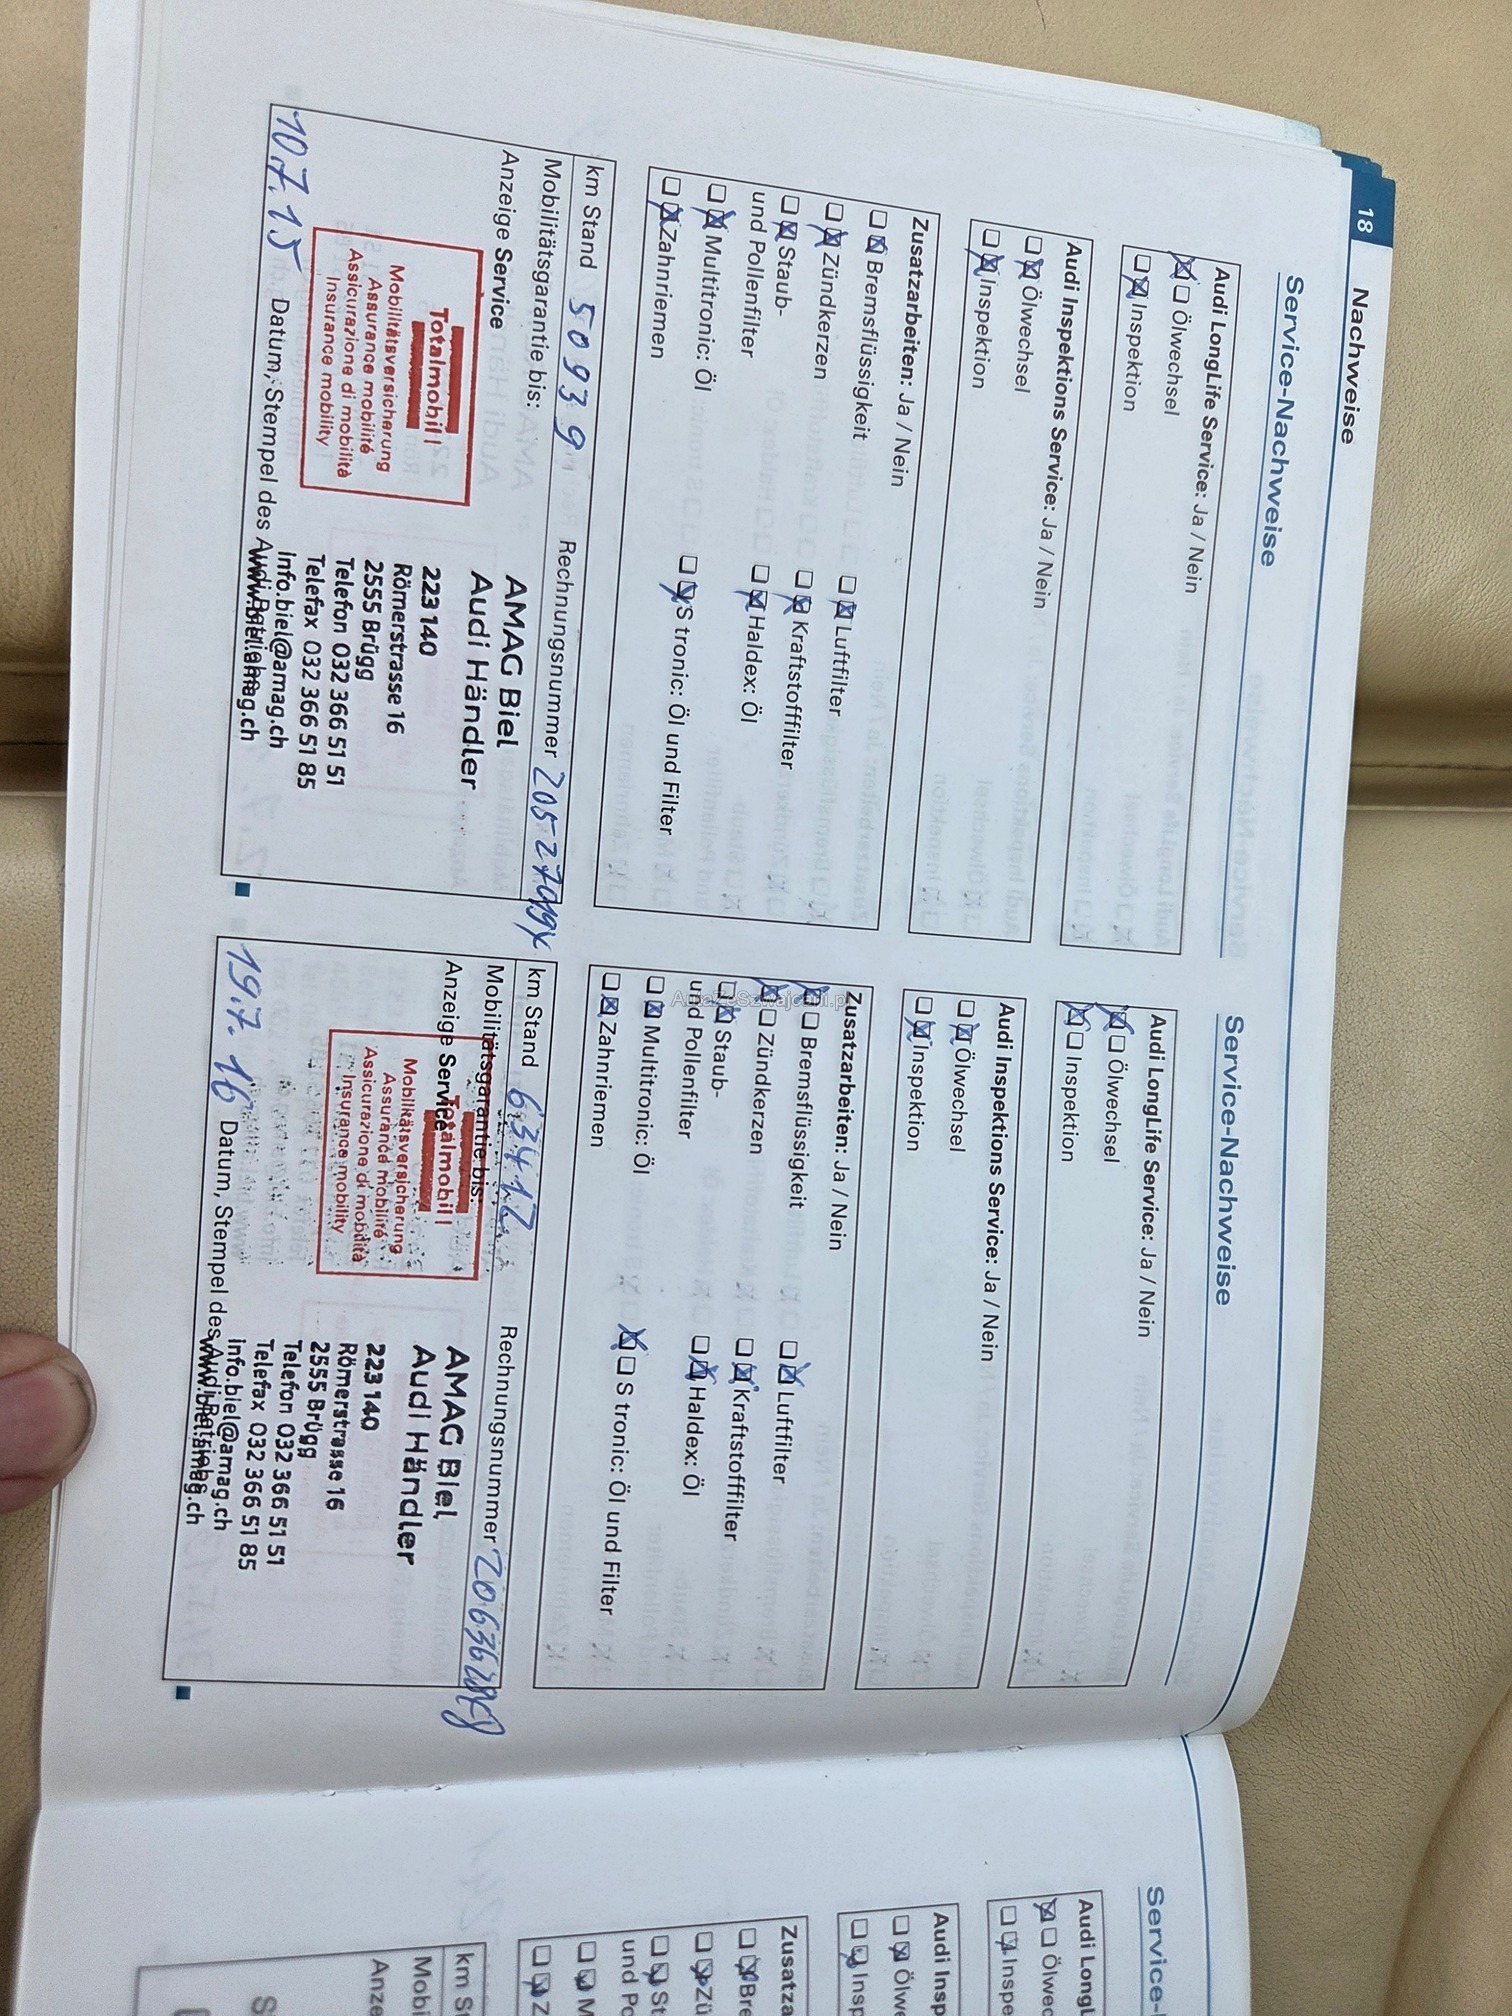 18 Nachweise
Service-Nachweise
Audi LongLife Service: Ja / Nein
Ölwechsel
Inspektion
Audi Inspektions Service: Ja / Nein
Ölwechsel
Inspektion
Zusatzarbeiten: Ja / Nein
Bremsflüssigkeit Luftfilter
Zündkerzen Kraftstofffilter
Staub-
und Pollenfilter Haldex: Öl
Multitronic: Öl S tronic: Öl und Filter
Zahnriemen
km Stand 50939 Rechnungsnummer
Mobilitätsgarantie bis:
Anzeige Service
Totalmobil!
Mobilitätsversicherung
Assurance mobilité
Assicurazione di mobilità
Insurance mobility
AMAG Biel
Audi Händler
223 140
Römerstrasse 16
2555 Brügg
Telefon 032 366 51 51
Telefax 032 366 51 85
info.biel@amag.ch
www.biel.amag.ch
10.7.15 Datum, Stempel des Audi Betriebs
Service-Nachweise
Audi LongLife Service: Ja / Nein
Ölwechsel
Inspektion
Audi Inspektions Service: Ja / Nein
Ölwechsel
Inspektion
Zusatzarbeiten: Ja / Nein
Bremsflüssigkeit Luftfilter
Zündkerzen Kraftstofffilter
Staub-
und Pollenfilter Haldex: Öl
Multitronic: Öl S tronic: Öl und Filter
Zahnriemen
km Stand 63412 Rechnungsnummer
Mobilitätsgarantie bis:
Anzeige Service
Totalmobil!
Mobilitätsversicherung
Assurance mobilité
Assicurazione di mobilità
Insurance mobility
AMAG Biel
Audi Händler
223 140
Römerstrasse 16
2555 Brügg
Telefon 032 366 51 51
Telefax 032 366 51 85
info.biel@amag.ch
www.biel.amag.ch
19.7.16 Datum, Stempel des Audi Betriebs
Service-
Audi Long
Ölwec
Inspe
Audi Insp
Ölwe
Insp
Zusatza
Bre
Zü
St
und Po
M
Z
km St
Mobi
Anze
S